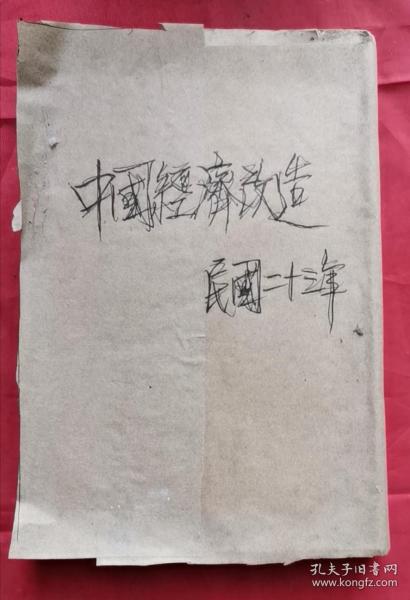 中國經濟改造
民國二十三年
孔夫子旧书网
www.kongfz.com